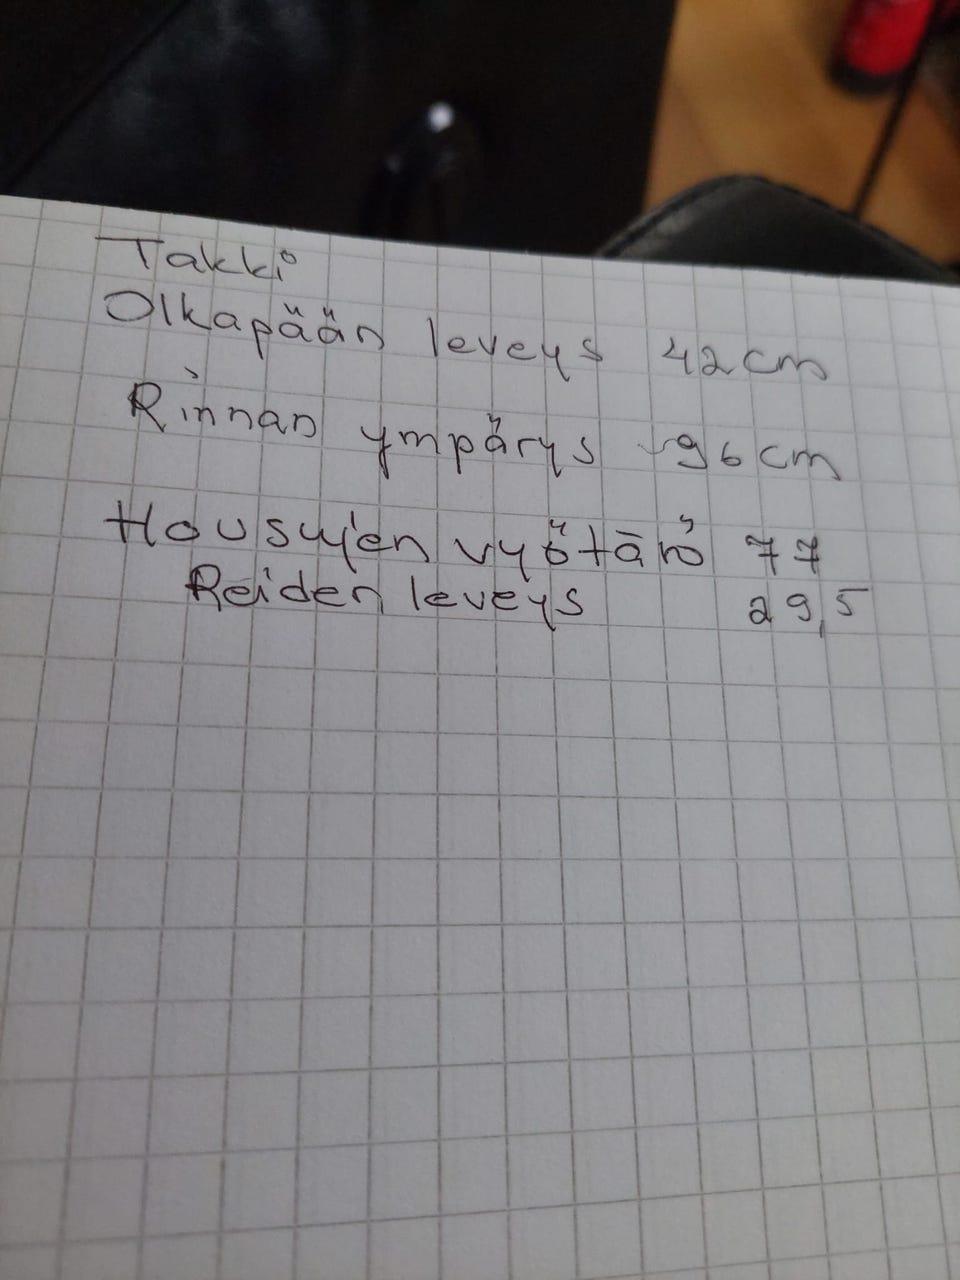 Takki
Olkapään leveys 42 cm
Rinnan ympärys 96 cm
Housujen vyötärö 77
Reiden leveys 29,5